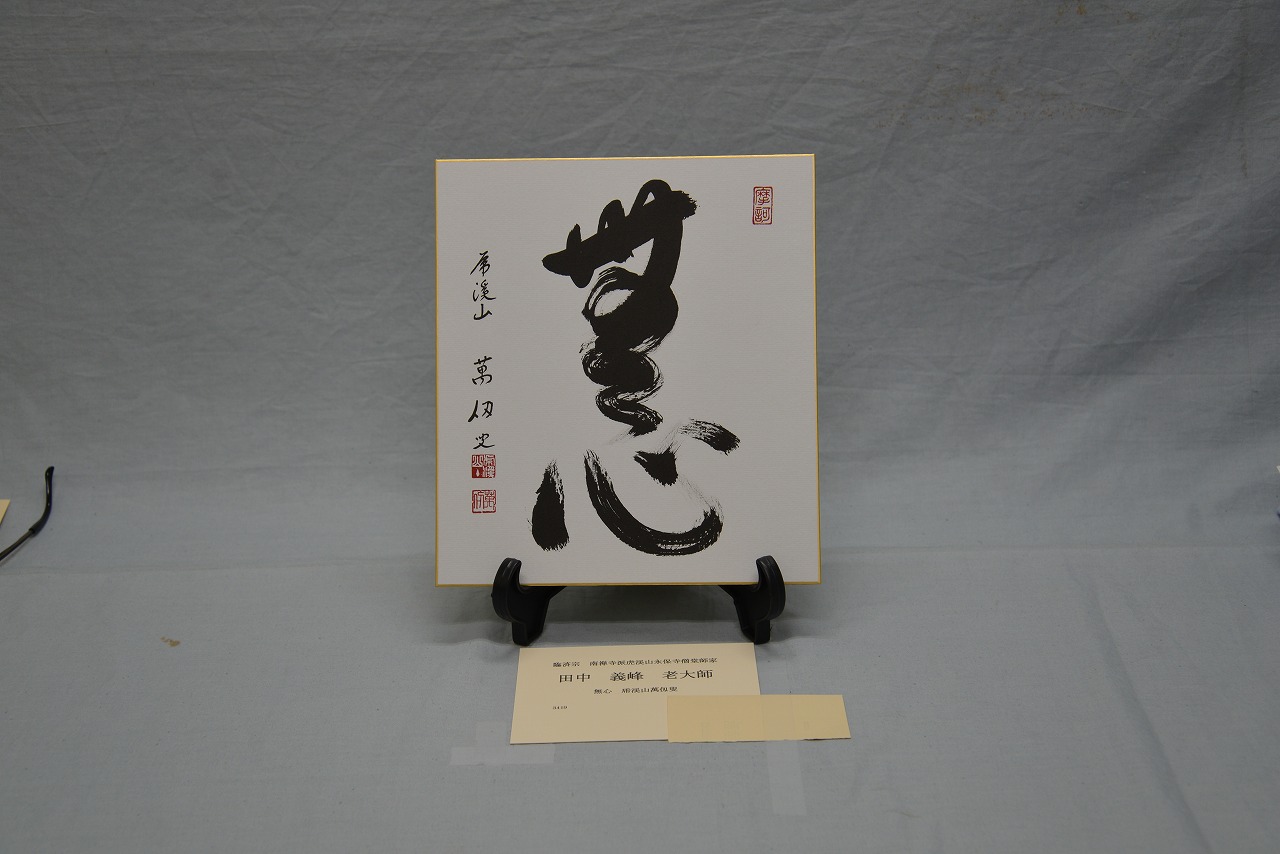 無心
虎溪山　萬仭叟
摩訶
臨済宗　南禅寺派虎渓山永保寺僧堂師家
田中　義峰　老大師
無心　虎渓山萬仭叟
0419